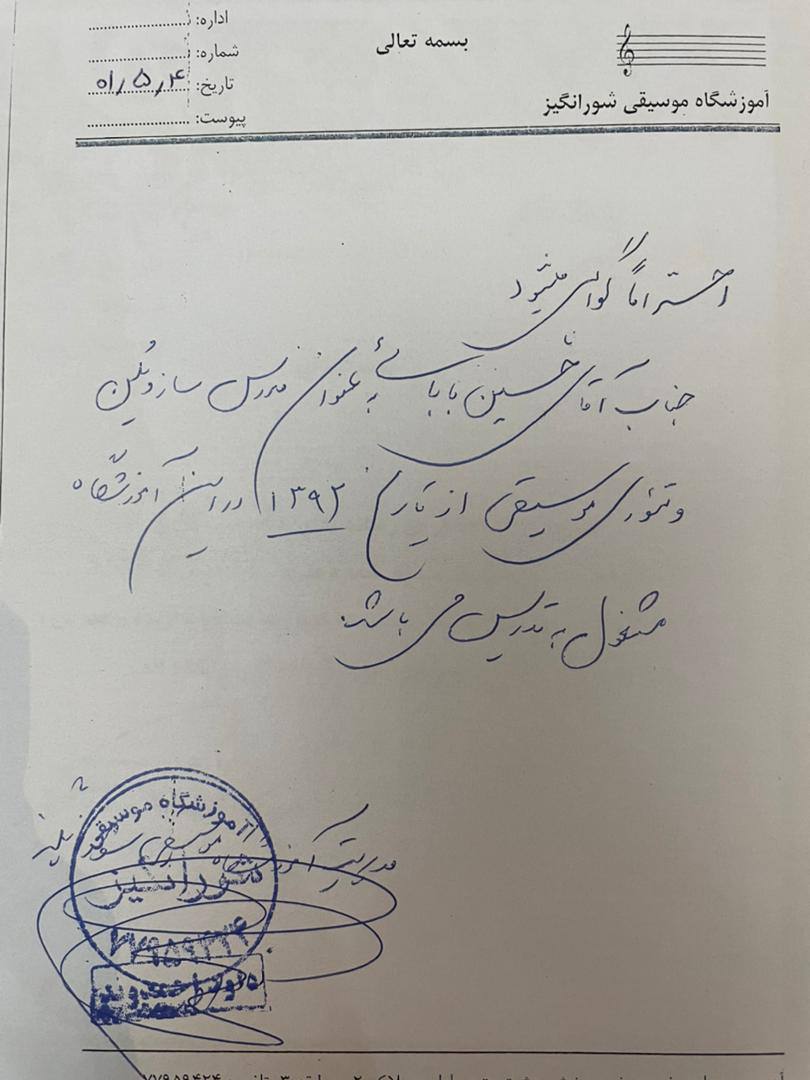 بسمه تعالی
آموزشگاه موسیقی شورانگیز
اداره:
شماره:
تاریخ: ۰۱/۵/۴
پیوست:
احتراماً گواهی میشود
جناب آقای حسین بابائی به عنوان مدرس ساز ویلن
و تئوری موسیقی از تاریخ ۱۳۹۲ در این آموزشگاه
مشغول به تدریس می باشد.
مدیریت آموزشگاه موسیقی شورانگیز
آموزشگاه موسیقی
شورانگیز
۷۷۹۵۹۴۲۴